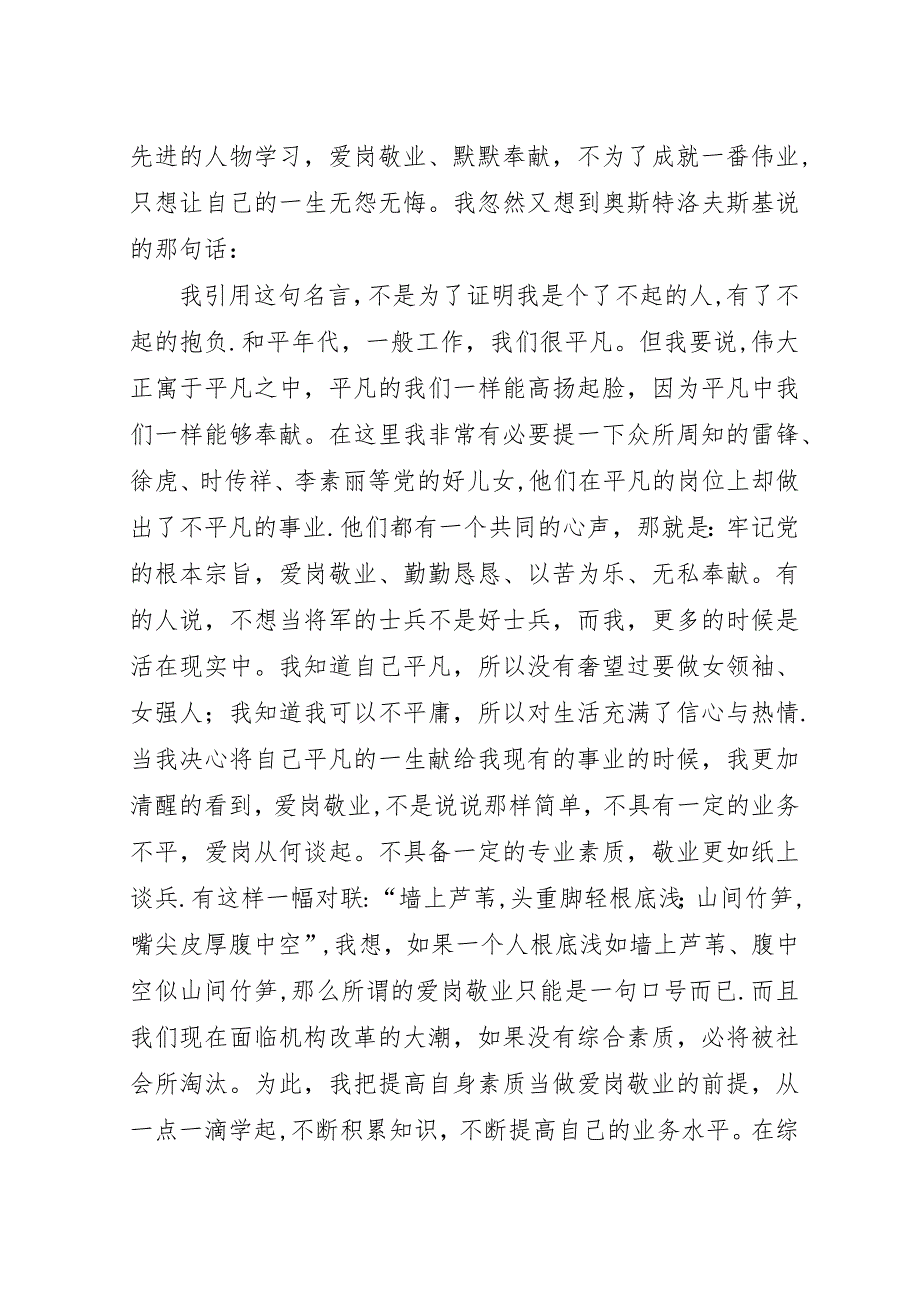 先进的人物学习，爱岗敬业、默默奉献，不为了成就一番伟业,
只想让自己的一生无怨无悔。我忽然又想到奥斯特洛夫斯基说
的那句话：
我引用这句名言，不是为了证明我是个了不起的人,有了不
起的抱负.和平年代，一般工作，我们很平凡。但我要说,伟大
正寓于平凡之中，平凡的我们一样能高扬起脸，因为平凡中我
们一样能够奉献。在这里我非常有必要提一下众所周知的雷锋、
徐虎、时传祥、李素丽等党的好儿女,他们在平凡的岗位上却做
出了不平凡的事业.他们都有一个共同的心声，那就是：牢记党
的根本宗旨，爱岗敬业、勤勤恳恳、以苦为乐、无私奉献。有
的人说，不想当将军的士兵不是好士兵，而我，更多的时候是
活在现实中。我知道自己平凡，所以没有奢望过要做女领袖、
女强人；我知道我可以不平庸，所以对生活充满了信心与热情.
当我决心将自己平凡的一生献给我现有的事业的时候，我更加
清醒的看到，爱岗敬业,不是说说那样简单，不具有一定的业务
不平，爱岗从何谈起。不具备一定的专业素质，敬业更如纸上
谈兵.有这样一幅对联：“墙上芦苇,头重脚轻根底浅；山间竹笋,
嘴尖皮厚腹中空”,我想，如果一个人根底浅如墙上芦苇、腹中
空似山间竹笋,那么所谓的爱岗敬业只能是一句口号而已.而且
我们现在面临机构改革的大潮，如果没有综合素质，必将被社
会所淘汰。为此，我把提高自身素质当做爱岗敬业的前提，从
一点一滴学起,不断积累知识，不断提高自己的业务水平。在综